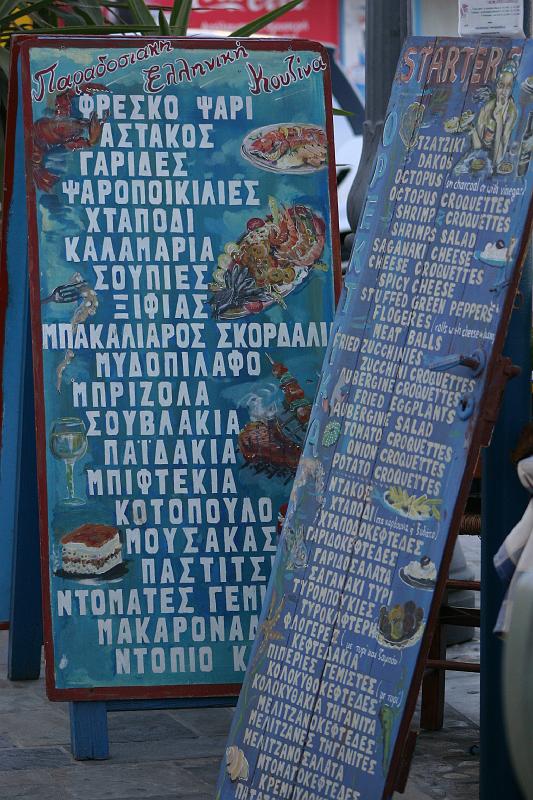 Παραδοσιακή Ελληνική Κουζίνα
ΦΡΕΣΚΟ ΨΑΡΙ
ΑΣΤΑΚΟΣ
ΓΑΡΙΔΕΣ
ΨΑΡΟΠΟΙΚΙΛΙΕΣ
ΧΤΑΠΟΔΙ
ΚΑΛΑΜΑΡΙΑ
ΣΟΥΠΙΕΣ
ΞΙΦΙΑΣ
ΜΠΑΚΑΛΙΑΡΟΣ ΣΚΟΡΔΑΛΙ
ΜΥΔΟΠΙΛΑΦΟ
ΜΠΡΙΖΟΛΑ
ΣΟΥΒΛΑΚΙΑ
ΠΑΪΔΑΚΙΑ
ΜΠΙΦΤΕΚΙΑ
ΚΟΤΟΠΟΥΛΟ
ΜΟΥΣΑΚΑΣ
ΠΑΣΤΙΤΣ
ΝΤΟΜΑΤΕΣ ΓΕΜΙ
ΜΑΚΑΡΟΝΑΔ
ΝΤΟΠΙΟ Κ
STARTERS
ΟΡΕΚΤ
TZATZIKI
DAKOS
OCTOPUS (on charcoal or with vinegar)
OCTOPUS CROQUETTES
SHRIMP CROQUETTES
SHRIMPS SALAD
SAGANAKI CHEESE
CHEESE CROQUETTES
SPICY CHEESE
STUFFED GREEN PEPPERS
FLOGERES
MEAT BALLS
FRIED ZUCCHINIES
ZUCCHINI CROQUETTES
AUBERGINE CROQUETTES
FRIED EGGPLANTS
AUBERGINE SALAD
TOMATO CROQUETTES
ONION CROQUETTES
POTATO CROQUETTES
ΝΤΑΚΟΣ
ΧΤΑΠΟΔΙ (στα κάρβουνα ή ξυδάτο)
ΧΤΑΠΟΔΟΚΕΦΤΕΔΕΣ
ΓΑΡΙΔΟΚΕΦΤΕΔΕΣ
ΓΑΡΙΔΟΣΑΛΑΤΑ
ΣΑΓΑΝΑΚΙ ΤΥΡΙ
ΤΥΡΟΜΠΟΥΚΙΕΣ
ΤΥΡΟΚΑΥΤΕΡΗ
ΦΛΟΓΕΡΕΣ (με τυρί και ζαμπόν)
ΚΕΦΤΕΔΑΚΙΑ
ΠΙΠΕΡΙΕΣ ΓΕΜΙΣΤΕΣ (με τυρί)
ΚΟΛΟΚΥΘΟΚΕΦΤΕΔΕΣ
ΚΟΛΟΚΥΘΑΚΙΑ ΤΗΓΑΝΙΤΑ
ΜΕΛΙΤΖΑΝΟΚΕΦΤΕΔΕΣ
ΜΕΛΙΤΖΑΝΕΣ ΤΗΓΑΝΙΤΕΣ
ΜΕΛΙΤΖΑΝΟΣΑΛΑΤΑ
ΝΤΟΜΑΤΟΚΕΦΤΕΔΕΣ